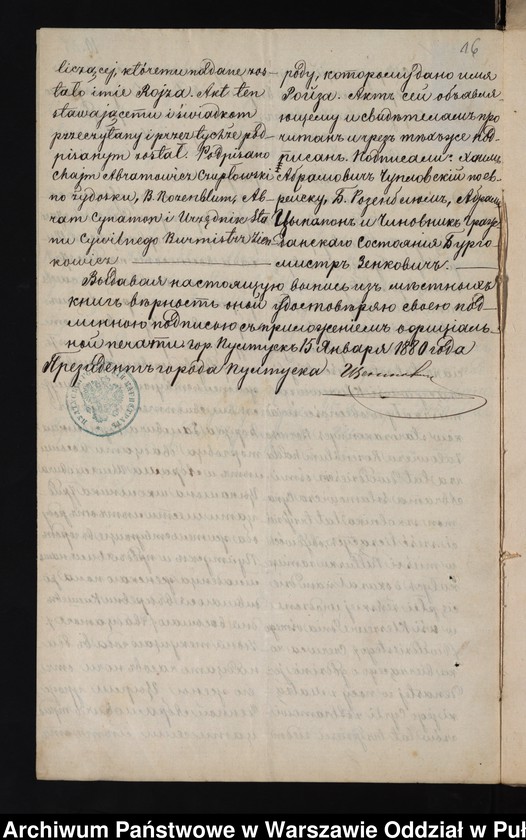 16
liczącej, któremu nadane zos-
tało imie Rojza. Akt ten
stawającemu i świadkom
przeczytany i przez tychże pod-
pisanym został. Podpisano
Chajm Abramowicz Czupłowski
po żydosku, B. Rozenblum, Ab-
ram Cynamon i Urzędnik Sta
nu Cywilnego Burmistrz Zien
kowicz
роду, которому дано имя
Ройза. Актъ сей объявля-
ющему и свидѣтелямъ про
читанъ и чрезъ тѣхъ же под-
писанъ. Подписали: Хаимъ
Абрамовичъ Чупловскій по ев-
рейску, Б. Розенблюмъ, Абрамъ
Цынамонъ и Чиновникъ Граж-
данскаго Состоянія Бурго-
мистръ Зенковичъ.
Выдавая настоящую выпись изъ мѣстныхъ
книгъ вѣрность оной удостовѣряю своею под-
линною подписью съ приложеніемъ офиціаль-
ной печати гор. Пултускъ 15 Января 1880 года
Президентъ города Пултуска
Archiwum Państwowe w Warszawie Oddział w Puł